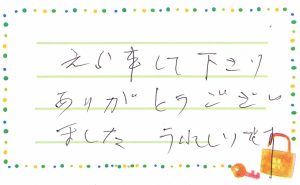 えら幸して下さり
ありがとうござい
ました うれしいです